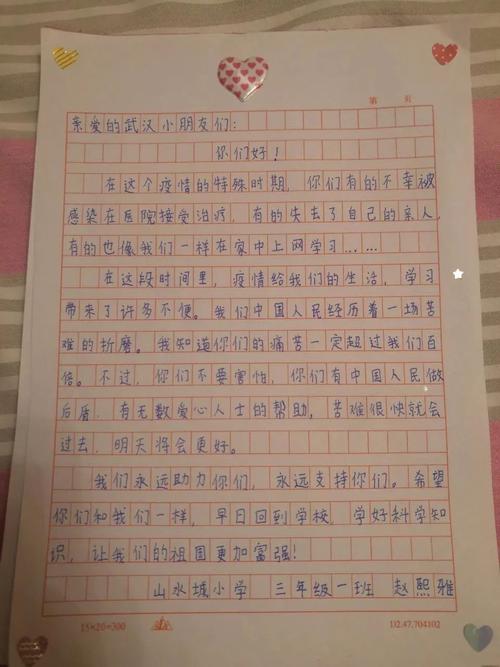 第 页
亲爱的武汉小朋友们:
你们好!
在这个疫情的特殊时期,你们有的不幸被
感染在医院接受治疗,有的失去了自己的亲人,
有的也像我们一样在家中上网学习……
在这段时间里,疫情给我们的生活、学习
带来了许多不便。我们中国人民经历着一场苦
难的折磨。我知道你们的痛苦一定超过我们百
倍。不过,你们不要害怕,你们有中国人民做
后盾,有无数爱心人士的帮助,苦难很快就会
过去,明天将会更好。
我们永远助力你们,永远支持你们。希望
你们和我们一样,早日回到学校,学好科学知
识,让我们的祖国更加富强!
山水城小学 三年级一班 赵熙雅
15×20=300 D2.47.704102